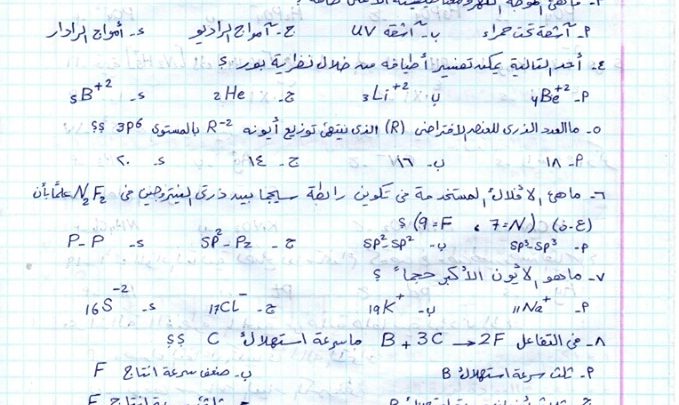 ٣- ما هي الموجة الكهرومغناطيسية الأعلى طاقة؟
P- آشعة تحت حمراء ب- آشعة UV ج- آمواج الراديو د- أمواج الرادار
٤- أحد التالية يمكن تفسير أطيافه من خلال نظرية بور؟
P- 4Be+2 ب- 3Li+2 ج- 2He د- 5B+2
٥- ما العدد الذري للعنصر الافتراضي (R) الذي ينتهي توزيع أيونه R-2 بالمستوى 3P6 ؟؟
P- ١٨ ب- ١٦ ج- ١٤ د- ٢٠
٦- ما هي الأفلاك المستخدمة في تكوين رابطة سيجما بين ذرتي النيتروجين في N2F2 علماً بأن
(ع.ذ) (7=N ، 9=F) ؟
P- SP3-SP3 ب- SP2-SP2 ج- SP2-Pz د- P-P
٧- ما هو الأيون الأكبر حجماً ؟
P- 11Na+ ب- 19K+ ج- 17CL- د- 16S-2
٨- في التفاعل B + 3C → 2F ما سرعة استهلاك C ؟؟
P- ثلث سرعة استهلاك B ب- ضعف سرعة انتاج F
سرعة انتاج F